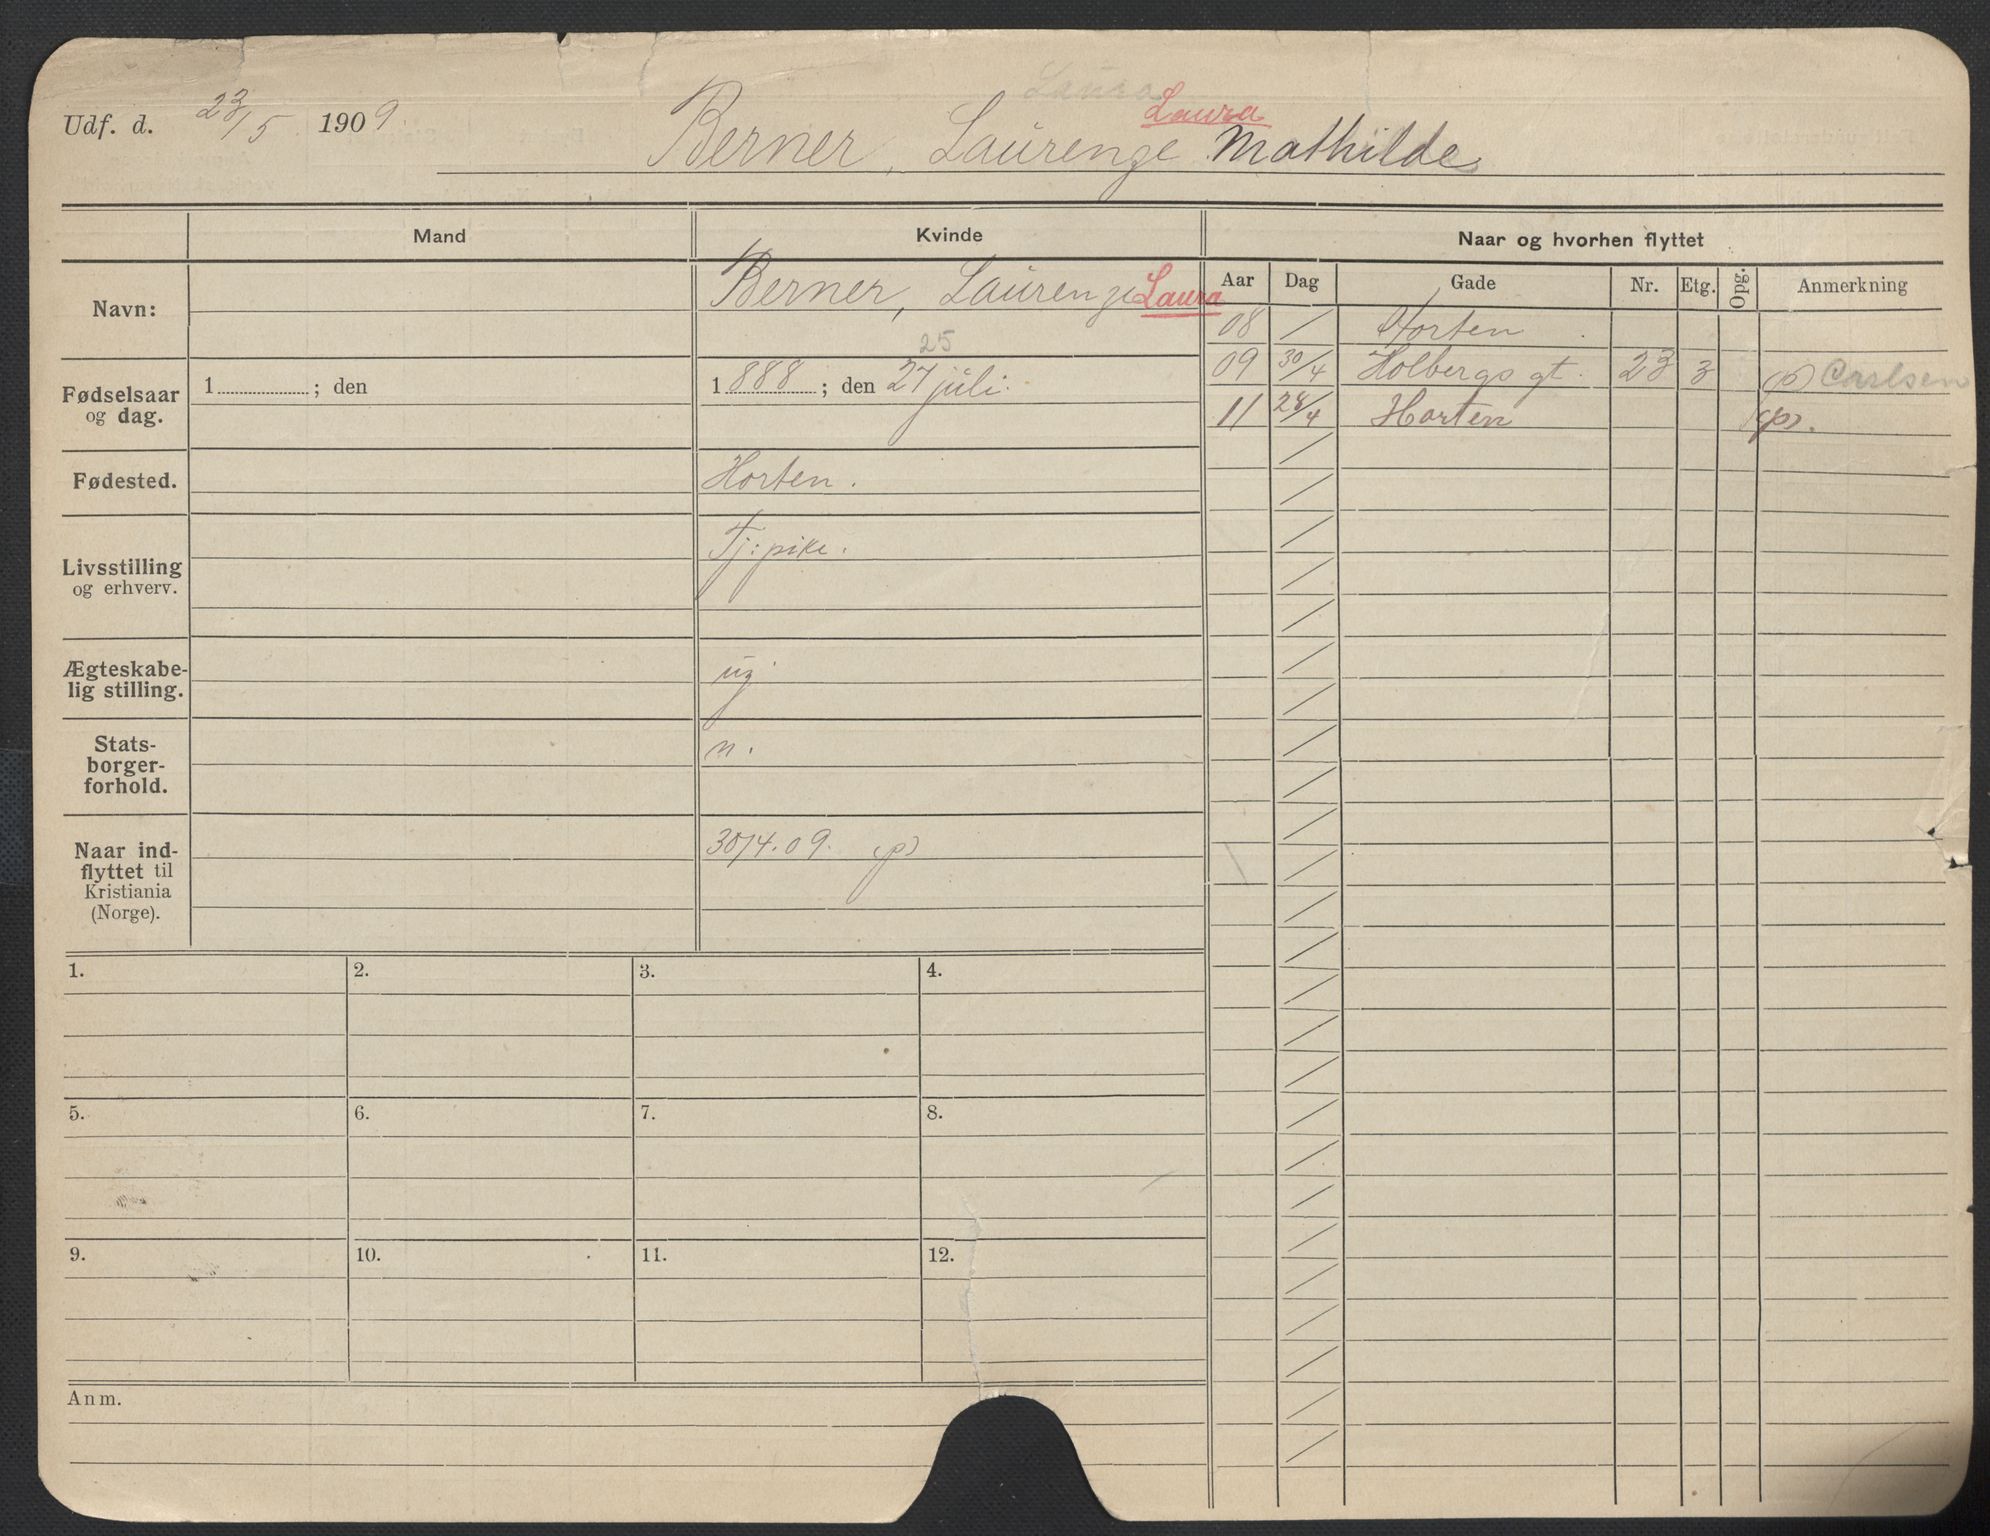 Laura
Udf. d. 23/5 1909.
Laura
Berner, Laurenze Mathilde
Mand
Kvinde
Naar og hvorhen flyttet
Navn:
Berner, Laurenze Laura
Aar Dag Gade Nr. Etg. Opg. Anmerkning
08 / Horten
09 30/4 Holbergs gt. 23 3 (p) Carlsen
11 28/4 Horten (p).
25
Fødselsaar
og dag.
1 ; den
1888 ; den 27 juli.
Fødested.
Horten.
Livsstilling
og erhverv.
Tj: pike.
Ægteskabe-
lig stilling.
ug
Stats-
borger-
forhold.
n.
Naar ind-
flyttet til
Kristiania
(Norge).
30/4.09. (p)
1. 2. 3. 4.
5. 6. 7. 8.
9. 10. 11. 12.
Anm.